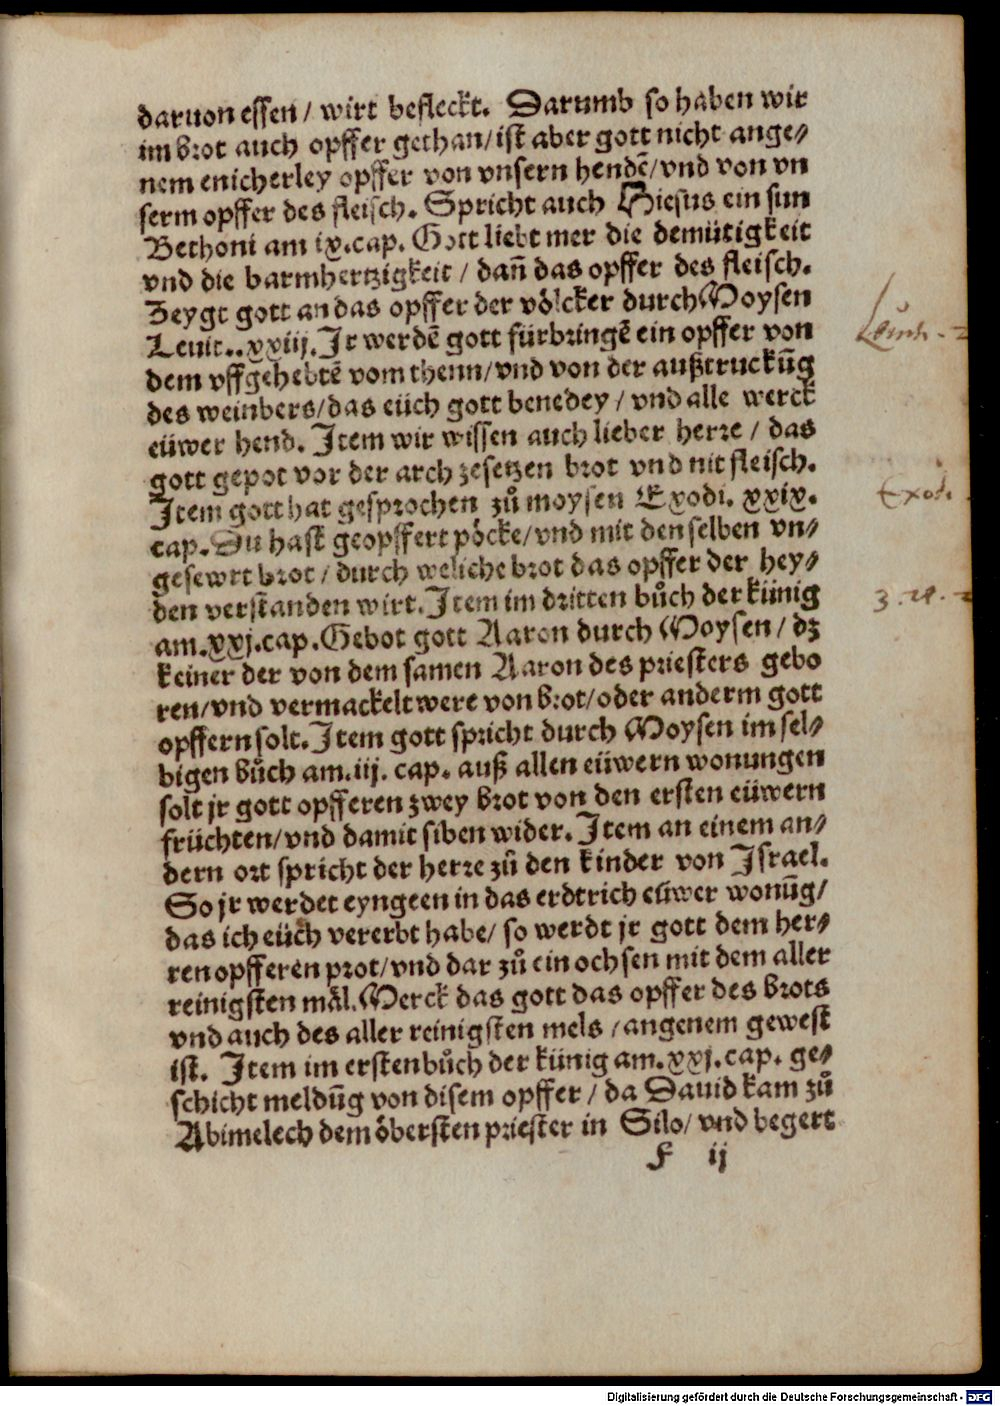 daruon essen / wirt befleckt. Darumb so haben wir
im brot auch opffer gethan/ist aber gott nicht ange⸗
nem enicherley opffer von vnsern hendẽ/vnd von vn
serm opffer des fleisch. Spricht auch Hiesus ein sun
Bethoni am ix.cap. Gott liebt mer die demütigkeit
vnd die barmhertzigkeit / dañ das opffer des fleisch.
Zeygt gott an das opffer der völcker durch Moysen
Leuit..xxiij. Ir werdẽ gott fürbringẽ ein opffer von
dem vffgehebtẽ vom thenn/vnd von der außtruckūg
des weinbers/das eüch gott benedey / vnd alle werck
eüwer hend. Item wir wissen auch lieber herre / das
gott gepot vor der arch zesetzen brot vnd nit fleisch.
Item gott hat gesprochen zů moysen Exodi. xxix.
cap. Du hast geopffert pöcke/vnd mit den selben vn⸗
gesewrt brot / durch weliche brot das opffer der hey⸗
den verstanden wirt. Item im dritten bůch der künig
am.xxj.cap. Gebot gott Aaron durch Moysen / dz
keiner der von dem samen Aaron des priesters gebo
ren/vnd vermackelt were von brot/oder anderm gott
opffern solt. Item gott spricht durch Moysen im sel⸗
bigen bůch am.iij. cap. auß allen eüwern wonungen
solt jr gott opfferen zwey brot von den ersten eüwern
früchten/vnd damit siben wider. Item an einem an⸗
dern ort spricht der herre zů den kinder von Israel.
So jr werdet eyngeen in das erdtrich eüwer wonūg/
das ich eüch vererbt habe/ so werdt jr gott dem her⸗
ren opfferen prot/vnd dar zů ein ochsen mit dem aller
reinigsten mäl. Merck das gott das opffer des brots
vnd auch des aller reinigsten mels / angenem gewest
ist. Item im ersten bůch der künig am.xxj.cap. ge⸗
schicht meldūg von disem opffer / da Dauid kam zů
Abimelech dem öbersten priester in Silo/ vnd begert
F ij
Exod.
Digitalisierung gefördert durch die Deutsche Forschungsgemeinschaft - DFG